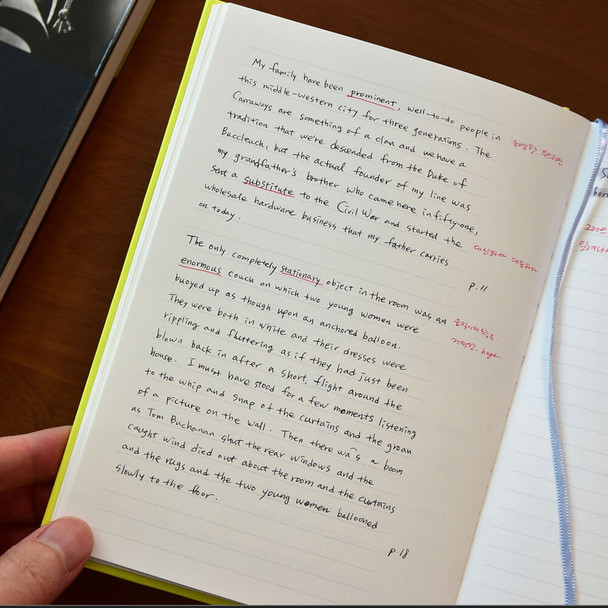 My family have been prominent, well-to-do people in
this middle-western city for three generations. The
Carraways are something of a clan and we have a
tradition that we're descended from the Duke of
Buccleuch, but the actual founder of my line was
my grandfather's brother who came here in fifty-one,
sent a substitute to the Civil War and started the
wholesale hardware business that my father carries
on today.
p.11
The only completely stationary object in the room was an
enormous couch on which two young women were
buoyed up as though upon an anchored balloon.
They were both in white and their dresses were
rippling and fluttering as if they had just been
blown back in after a short flight around the
house. I must have stood for a few moments listening
to the whip and snap of the curtains and the groan
of a picture on the wall. Then there was a boom
as Tom Buchanan shut the rear windows and the
caught wind died out about the room and the curtains
and the rugs and the two young women ballooned
slowly to the floor.
p.18
거대한, huge